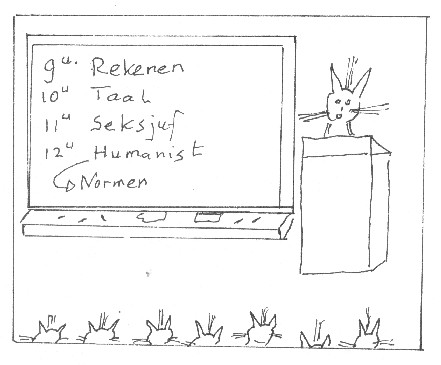 9u. Rekenen
10u Taal
11u Seksjuf
12u Humanist
Normen